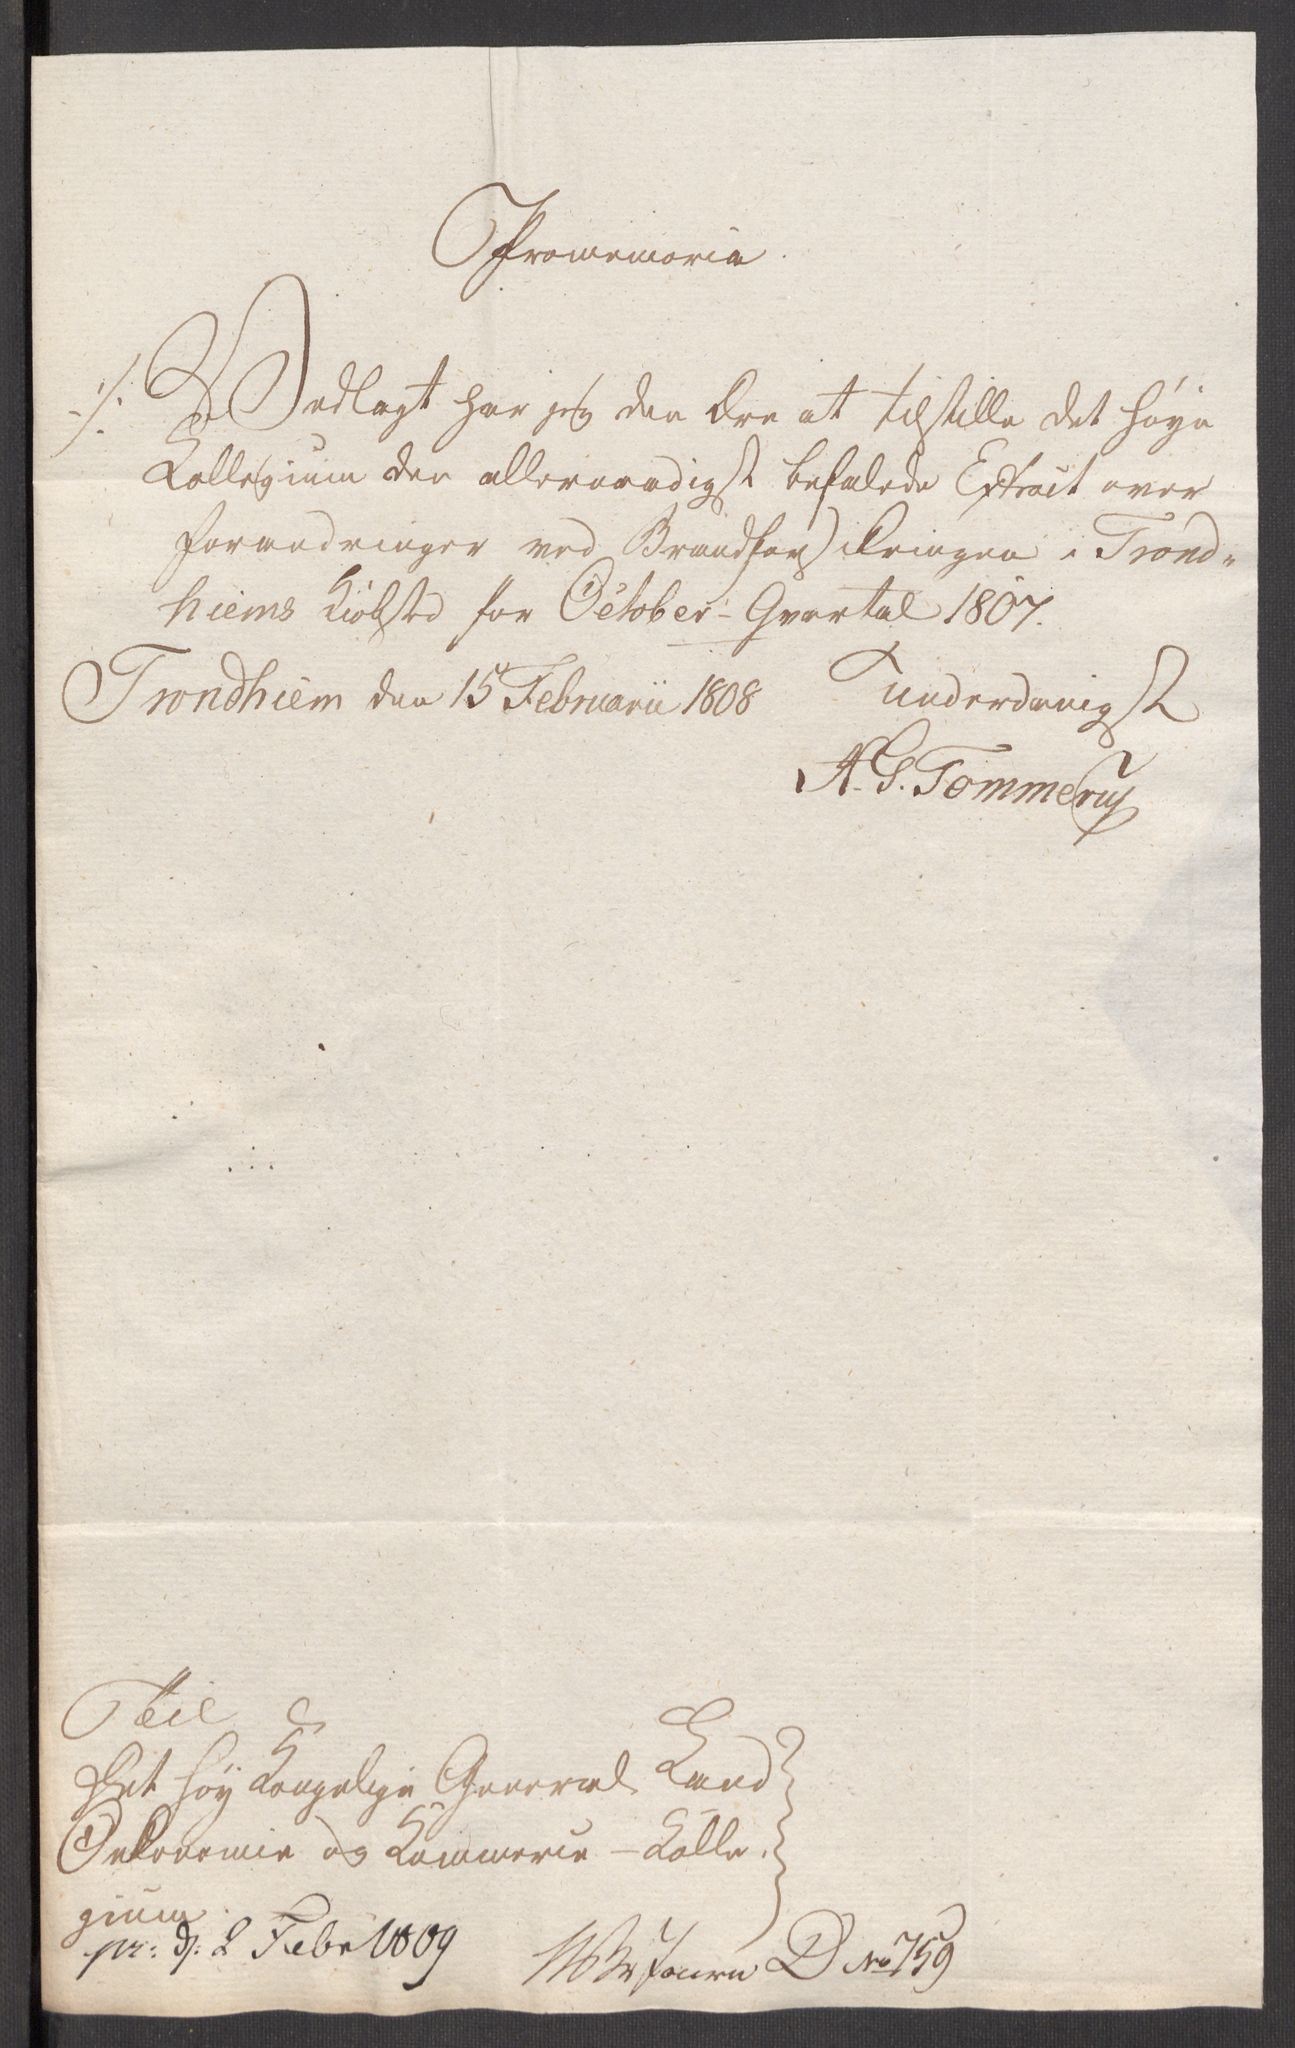 Promemoria
./. Vedlagt har jeg den Ære at tilstille det høye
Kollegium den allernaadigst befalede Extract over
forandringer ved Brandforsikringen i Trond-
hiems Kiöbsted for October-Qvartal 1807.
Trondhiem den 15 Februarii 1808 underdanigst
A. S. Tommerup
Til
Det høy Kongelige General Land
Oekonomie og Kommerce-Kolle-
gium.
pr: d: 2 Febr 1809 Journ D No 759